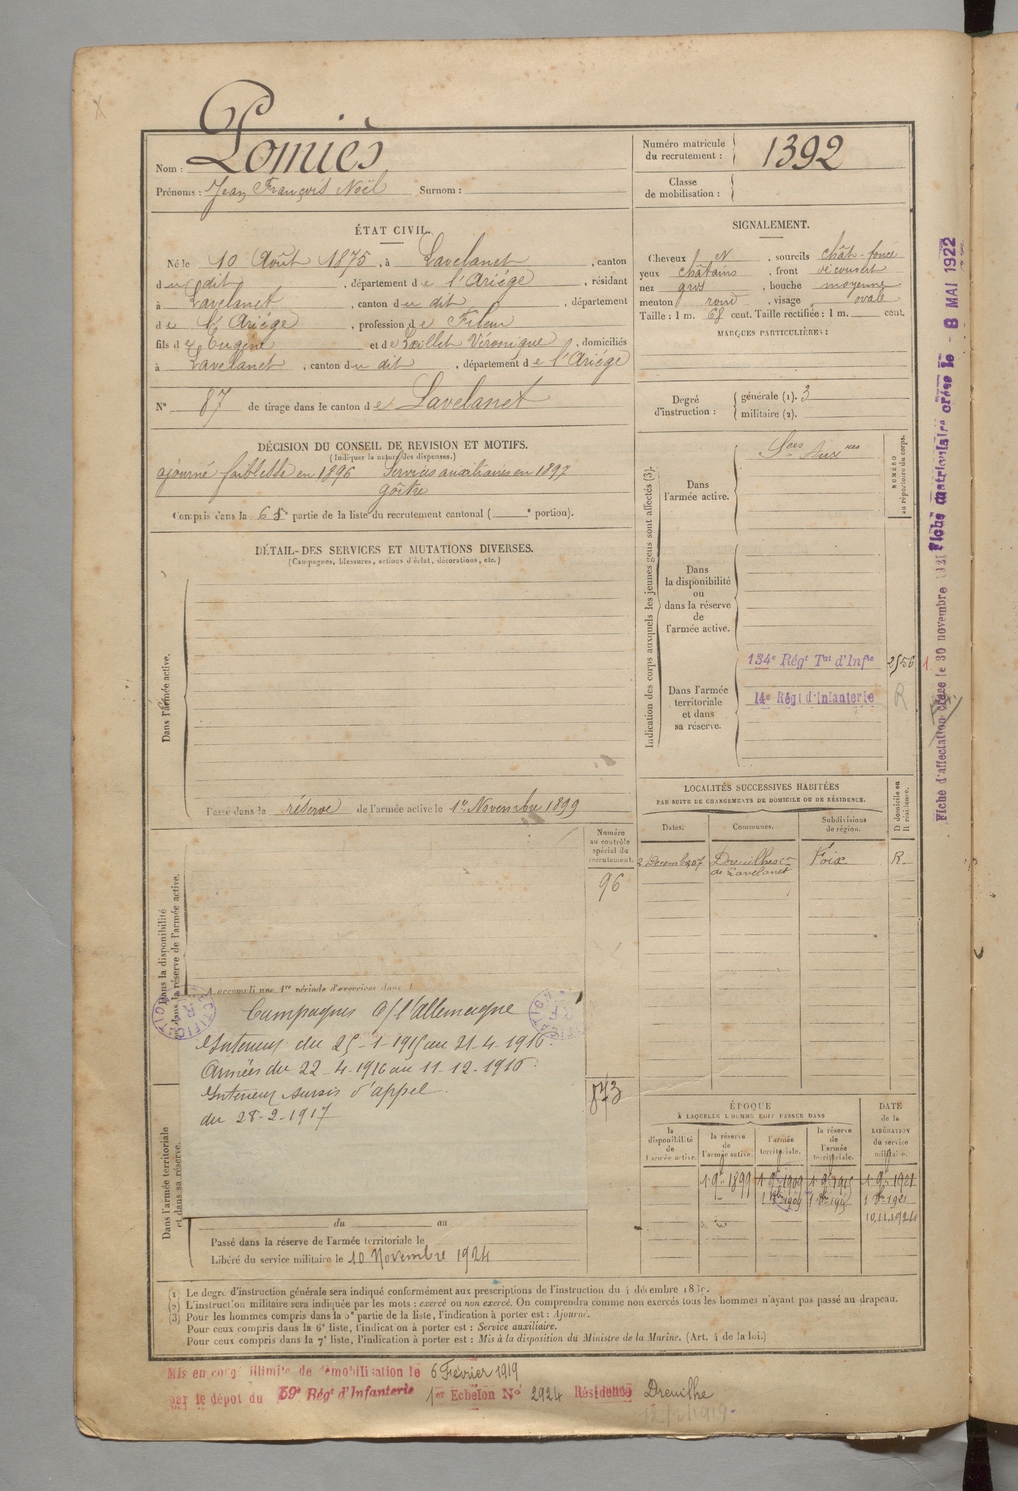 Nom : Pomiès
Prénoms : Jean François Noël Surnom :
Numéro matricule du recrutement : 1392
Classe de mobilisation :
ÉTAT CIVIL.
Né le 10 Août 1875, à Lavelanet, canton
du dit, département de l'Ariège, résidant
à Lavelanet, canton du dit, département
de l'Ariège, profession de Fileur
fils d' Eugène et de Loillet Véronique, domiciliés
à Lavelanet, canton du dit, département de l'Ariège
N° 87 de tirage dans le canton de Lavelanet
SIGNALEMENT.
Cheveux N, sourcils chât-foncé
yeux chatains, front découvert
nez gros, bouche moyenne
menton rond, visage ovale
Taille : 1 m. 68 cent. Taille rectifiée : 1 m. cent.
MARQUES PARTICULIÈRES :
Degré d'instruction : générale (1). 3
militaire (2).
DÉCISION DU CONSEIL DE REVISION ET MOTIFS.
(Indiquer la nature des dispenses.)
ajourné faiblesse en 1896 Services auxiliaires en 1897
goître
Compris dans la 6e partie de la liste du recrutement cantonal ( e portion).
DÉTAIL DES SERVICES ET MUTATIONS DIVERSES.
(Campagnes, blessures, actions d'éclat, décorations, etc.)
Dans l'armée active.
Passé dans la réserve de l'armée active le 1er Novembre 1899
Indication des corps auxquels les jeunes gens sont affectés (3).
NUMÉRO au répertoire du corps.
Dans l'armée active.
Sces Auxres
Dans la disponibilité ou dans la réserve de l'armée active.
Dans l'armée territoriale et dans sa réserve.
134e Régt Tal d'Infie 2556
14e Régt d'Infanterie R
LOCALITÉS SUCCESSIVES HABITÉES
PAR SUITE DE CHANGEMENTS DE DOMICILE OU DE RÉSIDENCE.
Dates. Communes. Subdivisions de région. D domicile ou R résidence.
2 Decembre 07 Dreuilhe con de Lavelanet Foix R
Numéro au contrôle spécial du recrutement.
96
Dans la disponibilité ou dans la réserve de l'armée active.
A accompli une 1re période d'exercices dans l
Campagnes c/ l'allemagne
Intérieur du 25-1-1915 au 21-4-1916
Armées du 22-4-1916 au 11-12-1916
Interieur sursis d'appel
du 28-2-1917
873
Dans l'armée territoriale et dans sa réserve.
du au
Passé dans la réserve de l'armée territoriale le
Libéré du service militaire le 10 Novembre 1924
ÉPOQUE
À LAQUELLE L'HOMME DOIT PASSER DANS
DATE de la LIBÉRATION du service militaire.
la disponibilité de l'armée active. la réserve de l'armée active. l'armée territoriale. la réserve de l'armée territoriale.
1 9bre 1899 1 9bre 1909 1 9bre 1915 1 9bre 1921
10.11.1924
(1) Le degré d'instruction générale sera indiqué conformément aux prescriptions de l'instruction du 4 décembre 1889.
(2) L'instruction militaire sera indiquée par les mots : exercé ou non exercé. On comprendra comme non exercés tous les hommes n'ayant pas passé au drapeau.
(3) Pour les hommes compris dans la 5e partie de la liste, l'indication à porter est : Ajourné.
Pour ceux compris dans la 6e liste, l'indication à porter est : Service auxiliaire.
Pour ceux compris dans la 7e liste, l'indication à porter est : Mis à la disposition du Ministre de la Marine. (Art. 4 de la loi.)
Mis en congé illimité de démobilisation le 6 Février 1919
par le dépôt du 59e Régt d'Infanterie 1er Echelon N° 2924 Résidence Dreuilhe
Fiche d'affectation créée le 30 novembre 1921 Fiche matriculaire créée le - 8 MAI 1922